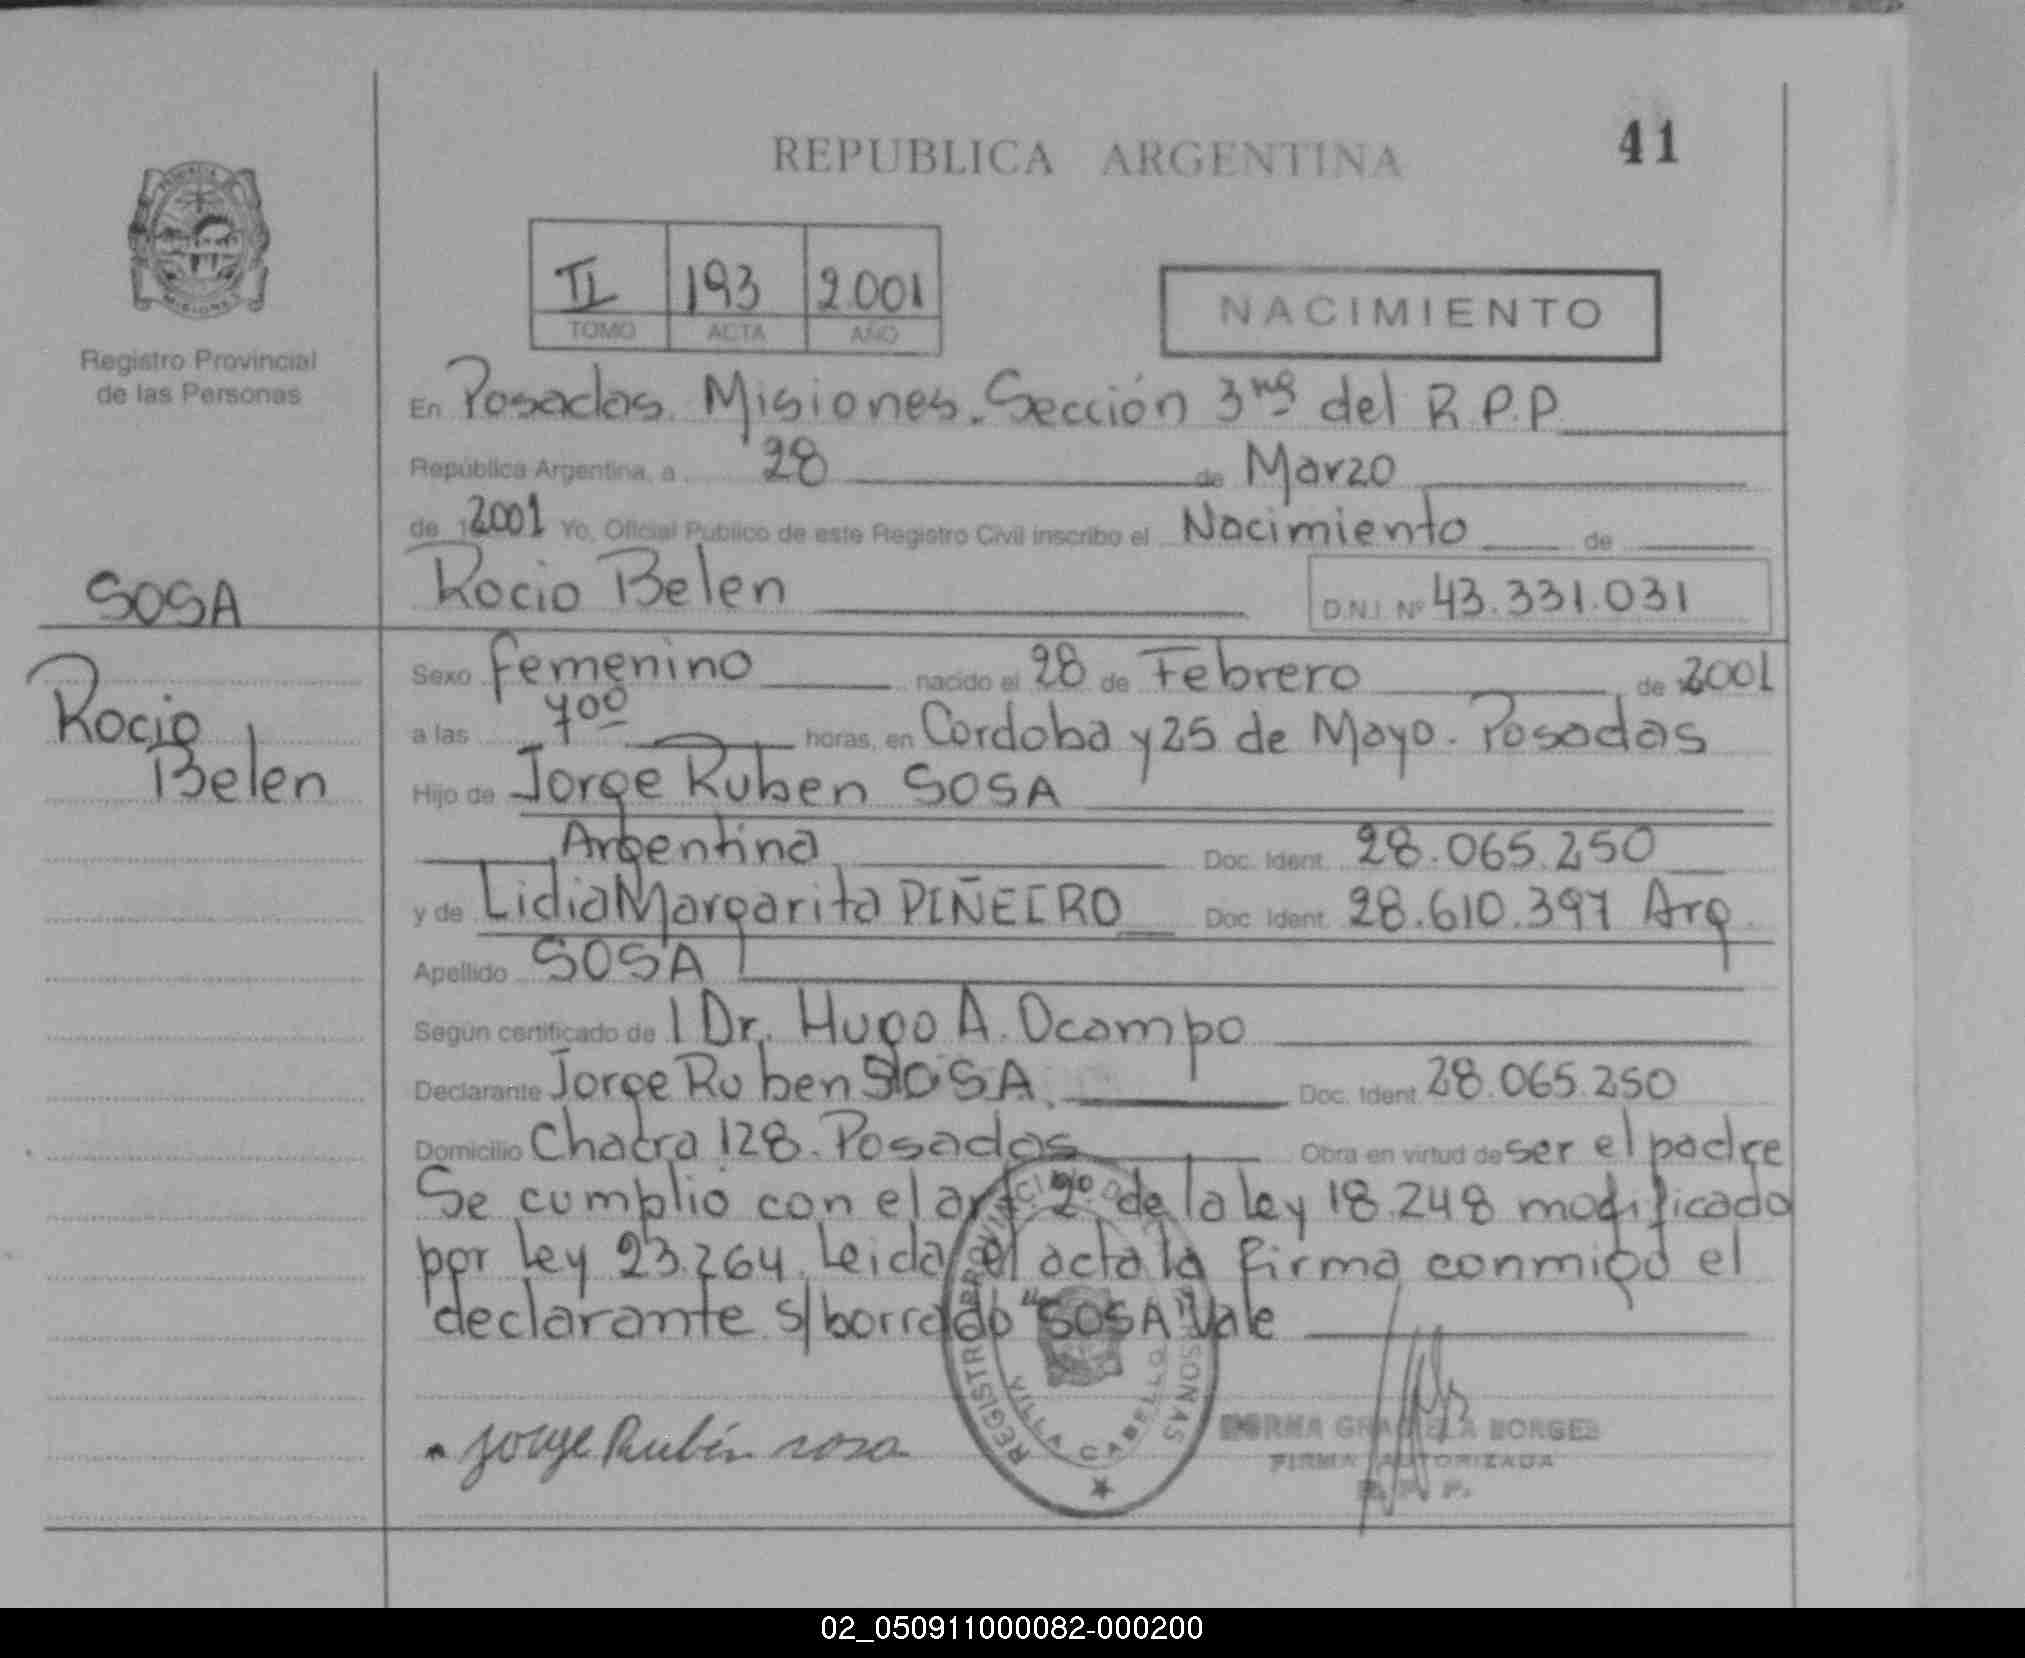 REPUBLICA ARGENTINA
41
II 193 2.001
TOMO ACTA AÑO
NACIMIENTO
MISIONES
Registro Provincial
de las Personas
En Posadas. Misiones. Sección 3ra del R.P.P.
República Argentina, a 28 de Marzo
de 2001 Yo, Oficial Publico de este Registro Civil inscribo el Nacimiento de
SOSA
Rocio Belen
D.N.I. Nº 43.331.031
Rocio
Belen
Sexo femenino nacido el 28 de Febrero de 2001
a las 700 horas, en Cordoba y 25 de Mayo. Posadas
Hijo de Jorge Ruben SOSA
Argentina Doc. Ident. 28.065.250
y de Lidia Margarita PIÑEIRO Doc. Ident. 28.610.397 Arg.
Apellido SOSA
Según certificado de l Dr. Hugo A. Ocampo
Declarante Jorge Ruben SOSA Doc. Ident. 28.065.250
Domicilio Chacra 128. Posadas Obra en virtud de ser el padre
Se cumplio con el art. 2º de la ley 18.248 modificado
por ley 23.264. Leida el acta la firma conmigo el
declarante s/borrado "SOSA" Vale
REGISTRO PROVINCIAL DE PERSONAS
VILLA CABELLO
Jorge Rubén sosa
NORMA GRACIELA BORGES
FIRMA AUTORIZADA
R. P. P.
02_050911000082-000200